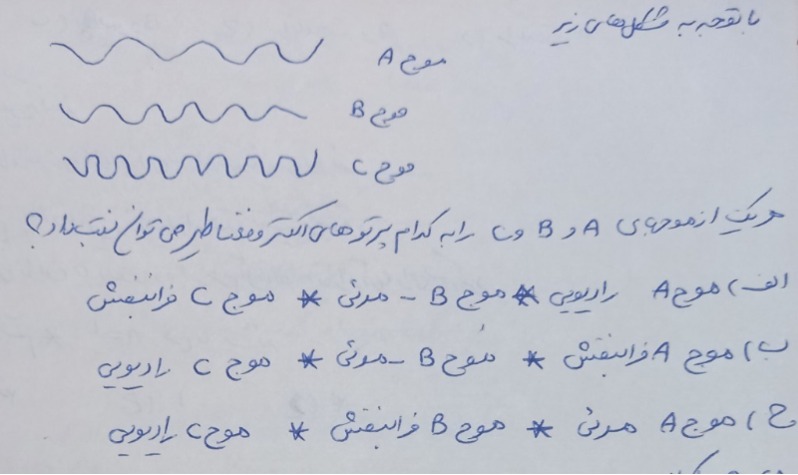 با توجه به شکل‌های زیر
موج A
موج B
موج C
هریک از موجهای A و B و C را به کدام پرتوهای الکترومغناطیسی توان نسبت داد؟
الف) موج A رادیویی * موج B - مرئی * موج C فرابنفش
ب) موج A فرابنفش * موج B - مرئی * موج C رادیویی
ج) موج A مرئی * موج B فرابنفش * موج C رادیویی